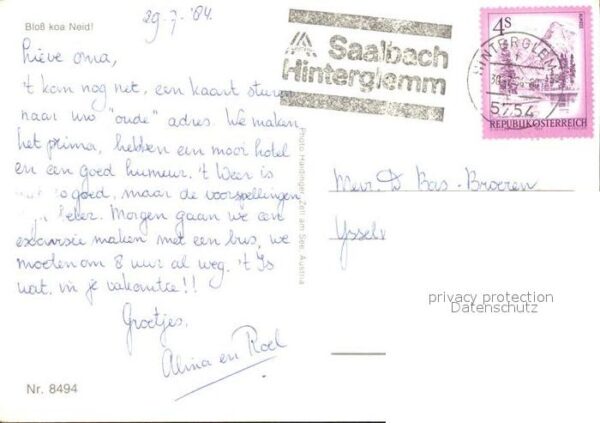 Bloß koa Neid!
29.7.'84.
Lieve oma,
't kan nog net, een kaart sturen
naar uw "oude" adres. We maken
het prima, hebben een mooi hotel
en een goed humeur. 't Weer is
goed, maar de voorspellingen
beter. Morgen gaan we een
excursie maken met een bus, we
moeten om 8 uur al weg. 't Is
wat, in je vakantie!!
Groetjes,
Alma en Roel
Nr. 8494
Photo Haidinger, Zell am See, Austria
Saalbach
Hinterglemm
4S
REPUBLIK ÖSTERREICH
HINTERGLEMM
5754
Mevr. D Bas-Broeren
Yssel
privacy protection
Datenschutz